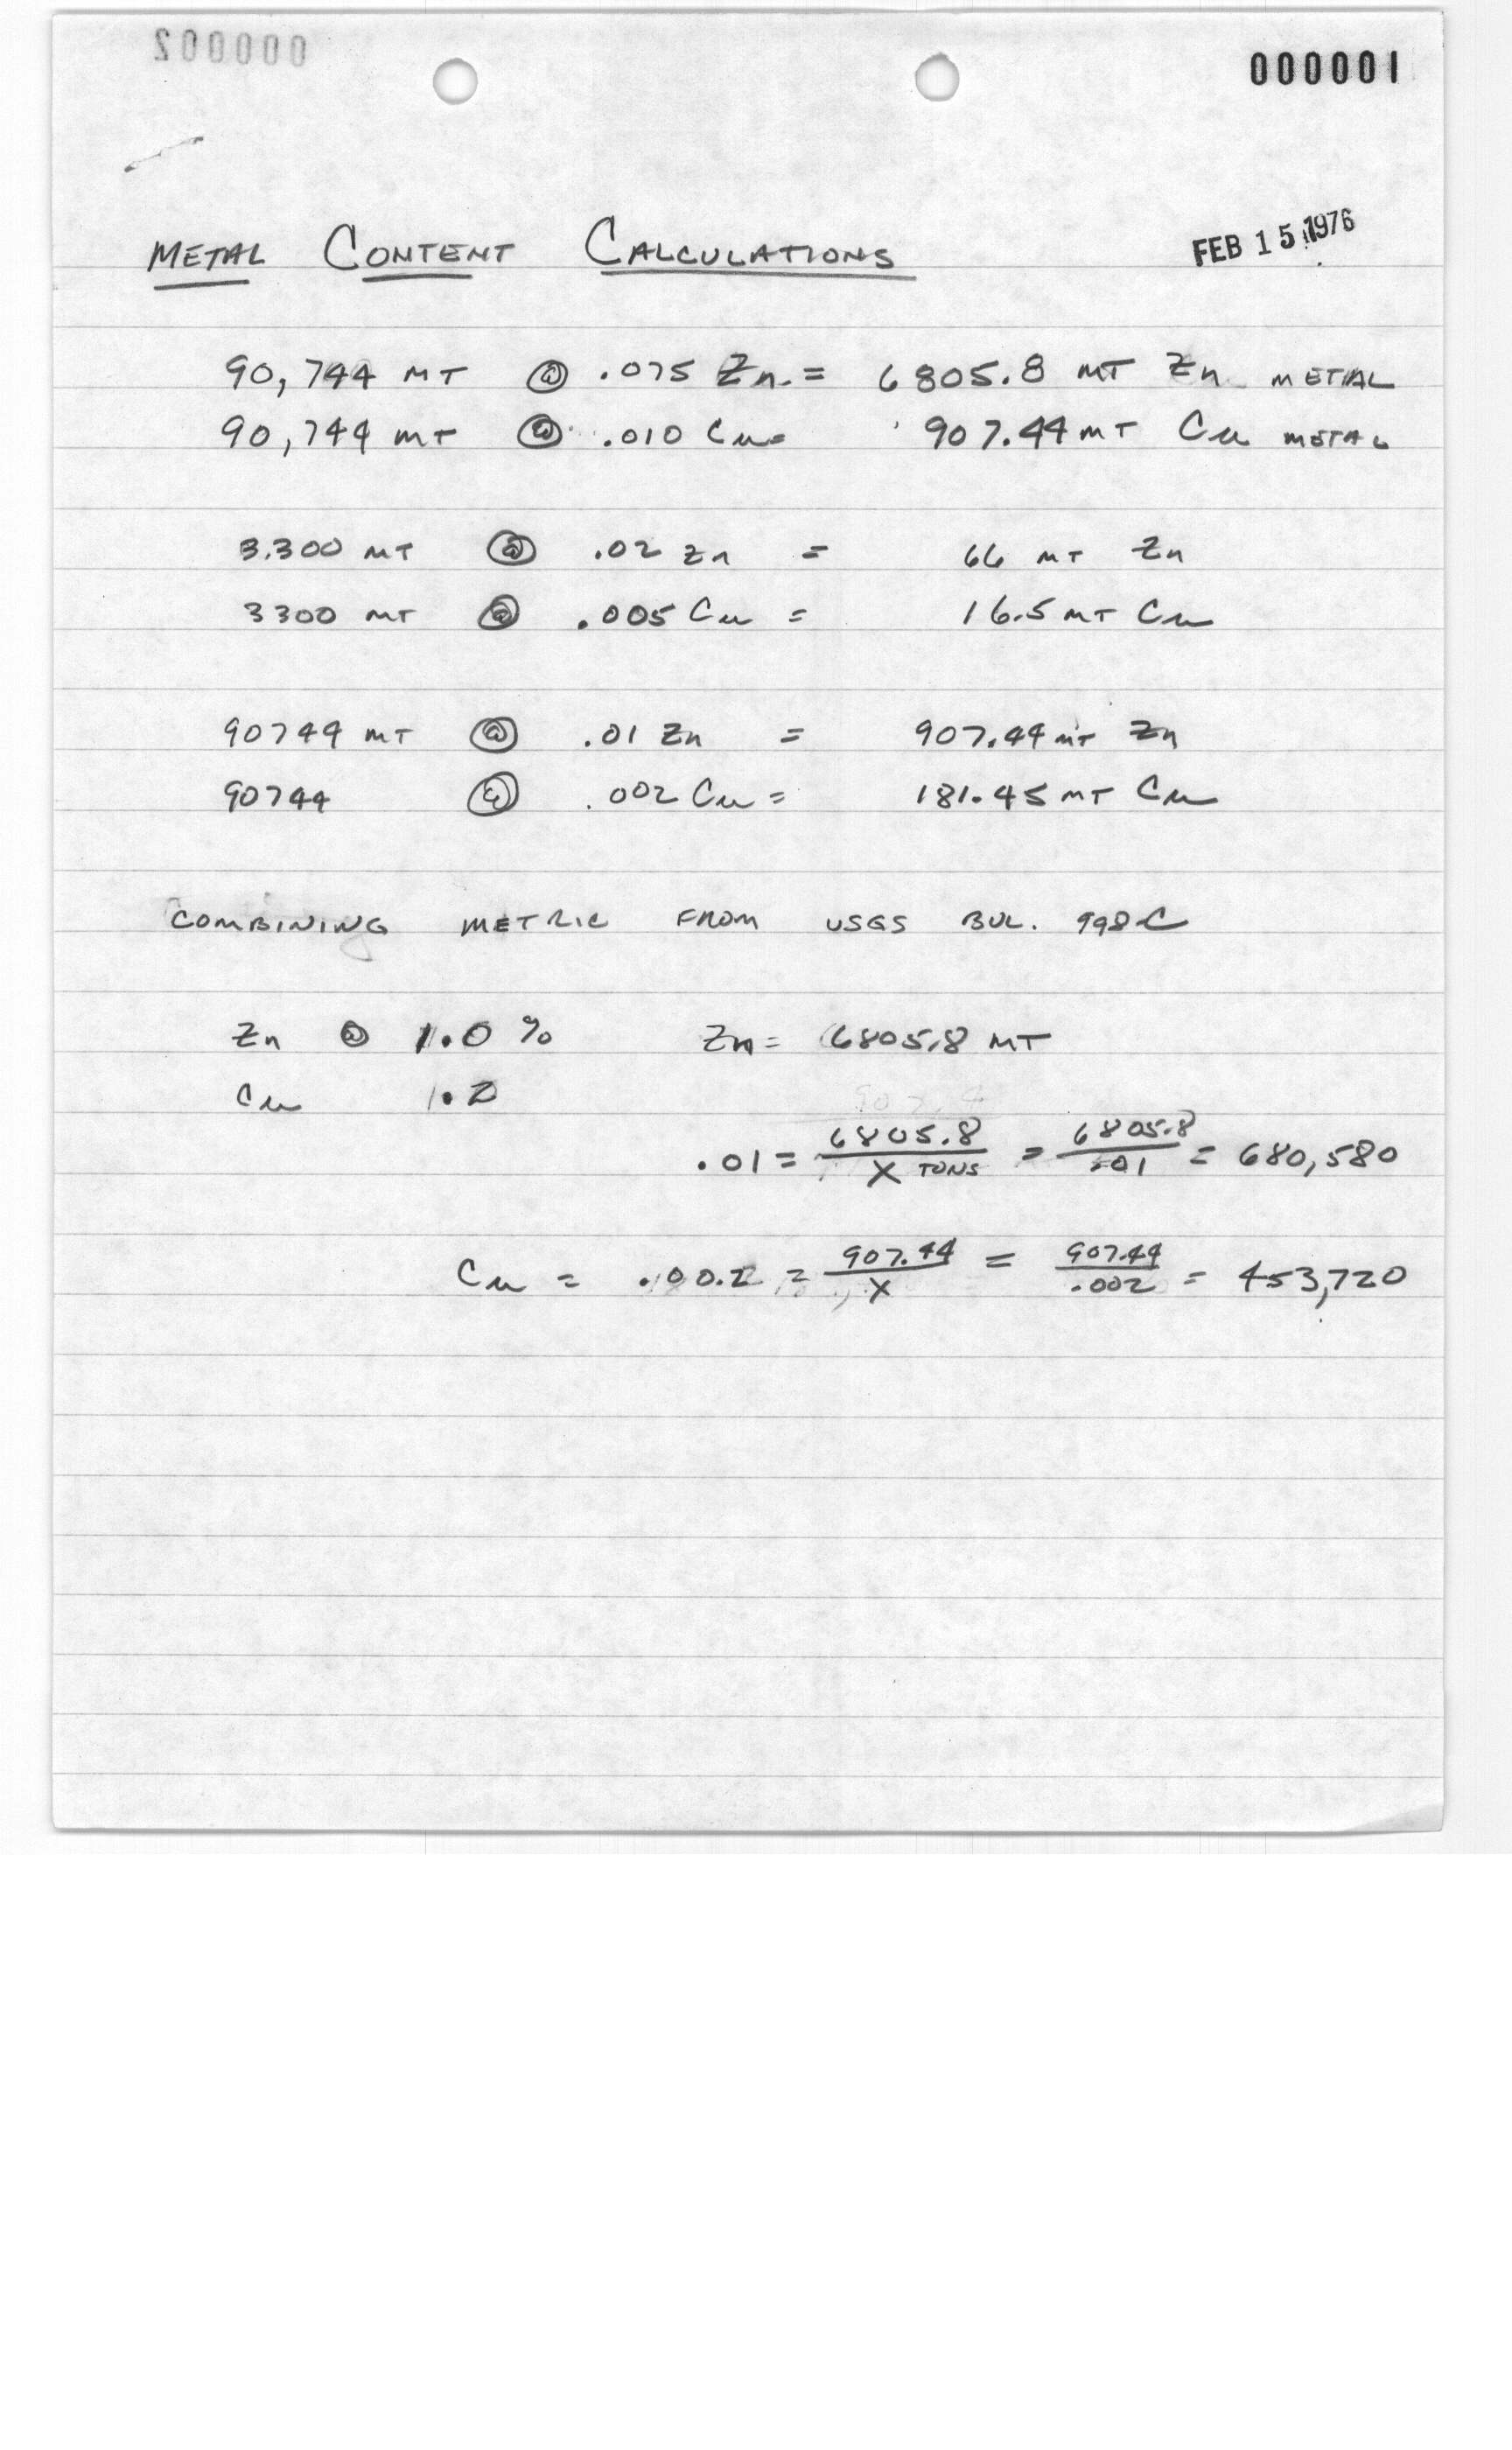 000002
000001
METAL CONTENT CALCULATIONS
FEB 15 1976
90,744 MT @ .075 Zn. = 6805.8 MT Zn METAL
90,744 MT @ .010 Cu = 907.44 MT Cu METAL
3.300 MT @ .02 Zn = 66 MT Zn
3300 MT @ .005 Cu = 16.5 MT Cu
90744 MT @ .01 Zn = 907.44 MT Zn
90744 @ .002 Cu = 181.45 MT Cu
COMBINING METRIC FROM USGS BUL. 998C
Zn @ 1.0 % Zn = 6805.8 MT
Cu
.01 = 6805.8 / X TONS = 6805.8 / .01 = 680,580
Cu = .00.2 = 907.44 / X = 907.44 / .002 = 453,720